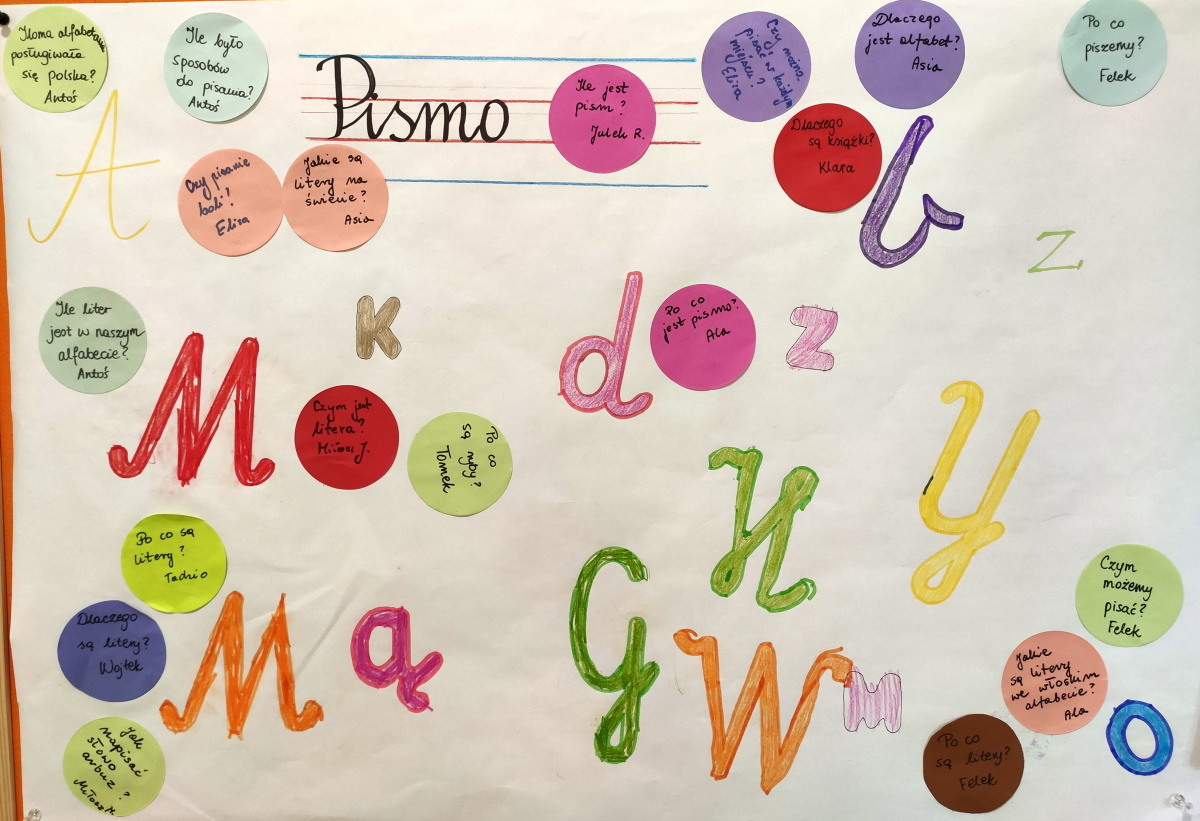 Iloma alfabetami
posługiwała
się polska?
Antoś
Ile było
sposobów
do pisania?
Antoś
Pismo
Ile jest
pism?
Julek R.
Czy można
pisać w każdym
miejscu?
Eliza
Dlaczego
jest alfabet?
Asia
Po co
piszemy?
Felek
A
Czy pisanie
boli?
Eliza
Jakie są
litery na
świecie?
Asia
Dlaczego
są książki?
Klara
l
z
Ile liter
jest w naszym
alfabecie?
Antoś
M
K
d
Po co
jest pismo?
Ala
z
Czym jest
litera?
Miłosz J.
Po co
są ryby?
Tomek
H
Y
Po co są
litery?
Tadzio
Dlaczego
są litery?
Wojtek
M
ą
G
W
m
Czym
możemy
pisać?
Felek
Jakie
są litery
we włoskim
alfabecie?
Ala
o
Jak
napisać
słowo
arbuz?
Miłosz M.
Po co
są litery?
Felek